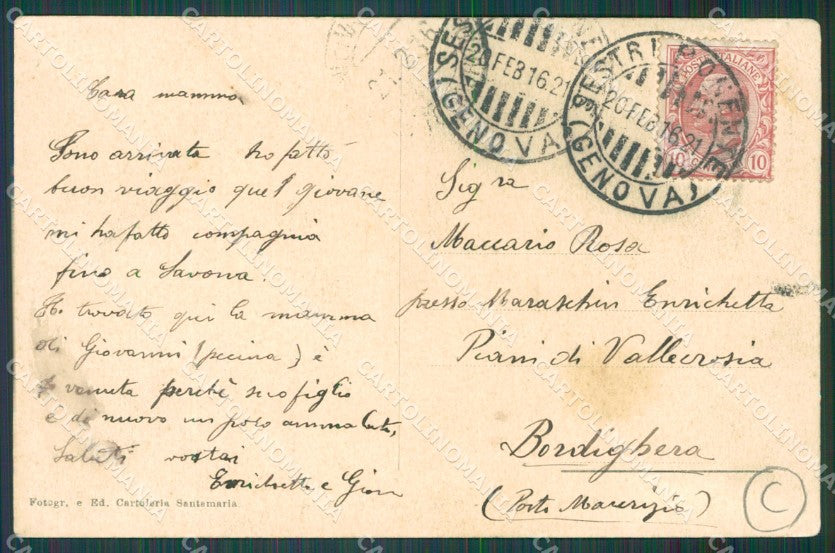 Cara mamma
Sono arrivata ho fatto
buon viaggio quel giovane
mi ha fatto compagnia
fino a Savona.
Ho trovato qui la mamma
di Giovanni (peccina) è
venuta perchè suo figlio
è di nuovo un poco ammalato,
Saluti vostri
Enrichetta e Giov
Fotogr. e Ed. Cartoleria Santamaria
SESTRI PONENTE
20 FEB 16.21
(GENOVA)
SESTRI PONENTE
20 FEB 16.21
(GENOVA)
POSTE ITALIANE
10 10
Sigra
Maccario Rosa
presso Maraschin Enrichetta
Piani di Vallecrosia
Bordighera
(Porto Maurizio)
C
CARTOLINOMANIA